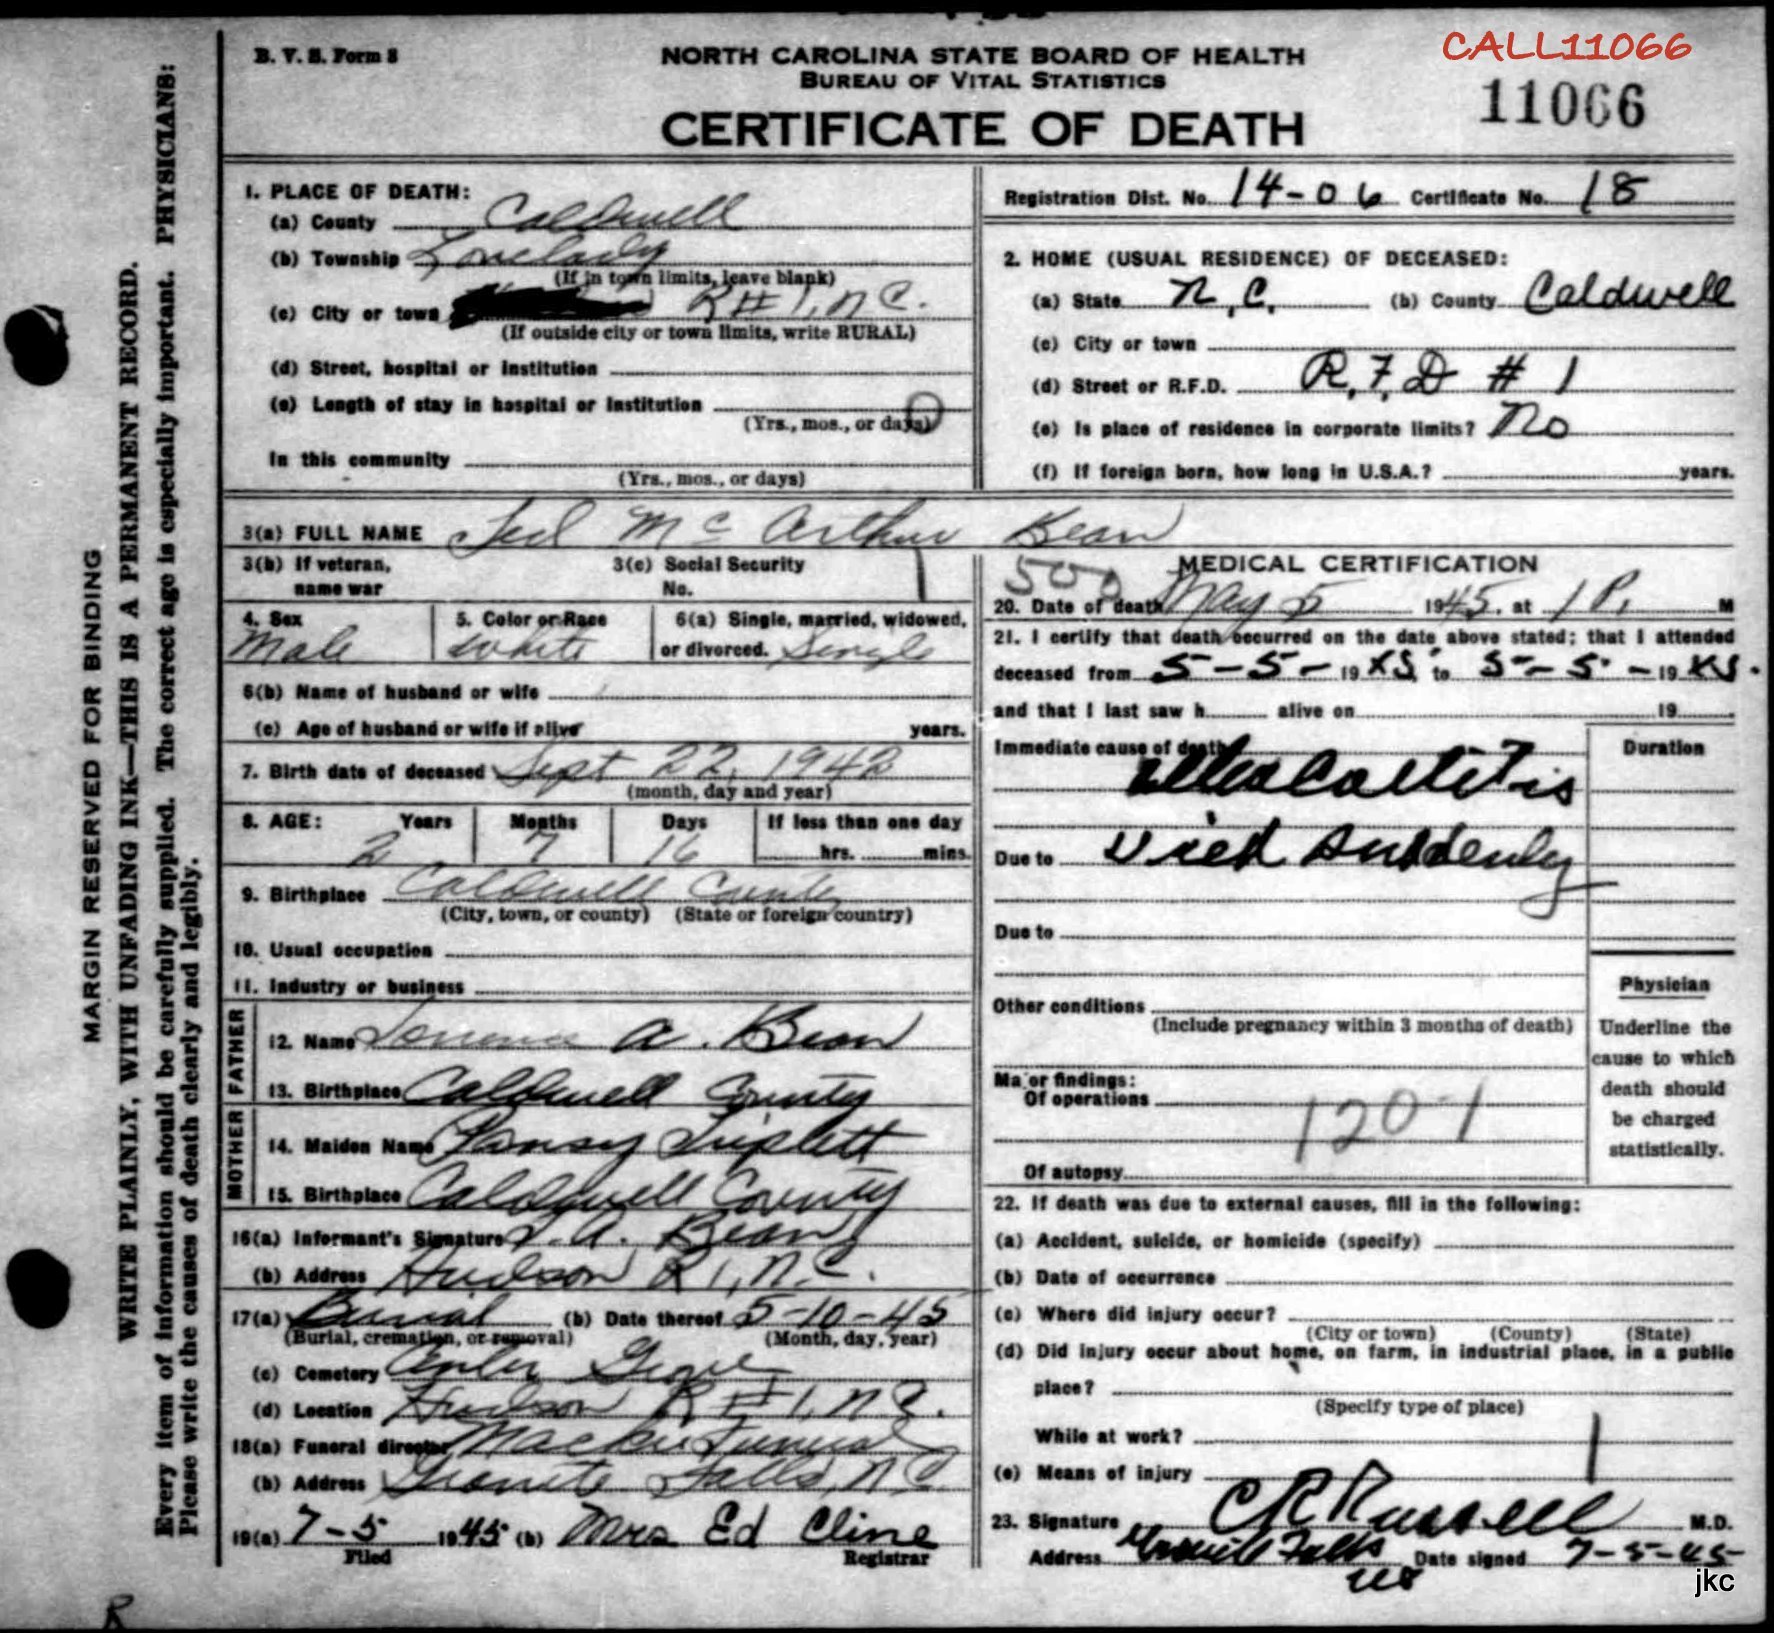 CALL11066
B. V. S. Form 8
NORTH CAROLINA STATE BOARD OF HEALTH
BUREAU OF VITAL STATISTICS
CERTIFICATE OF DEATH
11066
MARGIN RESERVED FOR BINDING
WRITE PLAINLY, WITH UNFADING INK—THIS IS A PERMANENT RECORD.
Every item of information should be carefully supplied. The correct age is especially important. PHYSICIANS:
Please write the causes of death clearly and legibly.
1. PLACE OF DEATH:
(a) County Caldwell
(b) Township Lovelady
(If in town limits, leave blank)
(c) City or town R#1, N.C.
(If outside city or town limits, write RURAL)
(d) Street, hospital or institution
(e) Length of stay in hospital or institution
(Yrs., mos., or days)
In this community
(Yrs., mos., or days)
Registration Dist. No. 14-06 Certificate No. 18
2. HOME (USUAL RESIDENCE) OF DECEASED:
(a) State N.C. (b) County Caldwell
(c) City or town
(d) Street or R.F.D. R.F.D # 1
(e) Is place of residence in corporate limits? No
(f) If foreign born, how long in U.S.A.? years.
3(a) FULL NAME Ted Mc Arthur Bean
3(b) If veteran, name war
3(c) Social Security No.
4. Sex Male
5. Color or Race White
6(a) Single, married, widowed, or divorced. Single
6(b) Name of husband or wife
(c) Age of husband or wife if alive years.
7. Birth date of deceased Sept 22, 1942
(month, day and year)
8. AGE: Years Months Days If less than one day
2 7 16 hrs. mins.
9. Birthplace Caldwell County
(City, town, or county) (State or foreign country)
10. Usual occupation
11. Industry or business
FATHER
12. Name A. Bean
13. Birthplace Caldwell County
MOTHER
14. Maiden Name Pansy Triplett
15. Birthplace Caldwell County
16(a) Informant's Signature A. Bean
(b) Address Hudson R 1, N.C.
17(a) Burial (b) Date thereof 5-10-45
(Burial, cremation, or removal) (Month, day, year)
(c) Cemetery Center Grove
(d) Location Hudson R#1, N.C.
18(a) Funeral director Mackie Funeral
(b) Address Granite Falls, N.C.
19(a) 7-5 1945 (b) Mrs Ed Cline
Filed Registrar
500
MEDICAL CERTIFICATION
20. Date of death May 5 1945. at 1 P. M
21. I certify that death occurred on the date above stated; that I attended
deceased from 5-5-1945 to 5-5-1945.
and that I last saw h alive on 19
Immediate cause of death
Duration
Due to Died suddenly
Due to
Other conditions
(Include pregnancy within 3 months of death)
Major findings:
Of operations
1201
Of autopsy
Physician
Underline the
cause to which
death should
be charged
statistically.
22. If death was due to external causes, fill in the following:
(a) Accident, suicide, or homicide (specify)
(b) Date of occurrence
(c) Where did injury occur?
(City or town) (County) (State)
(d) Did injury occur about home, on farm, in industrial place, in a public
place?
(Specify type of place)
While at work?
(e) Means of injury
23. Signature C R Russell M.D.
Address Granite Falls NC Date signed 7-5-45
jkc
R